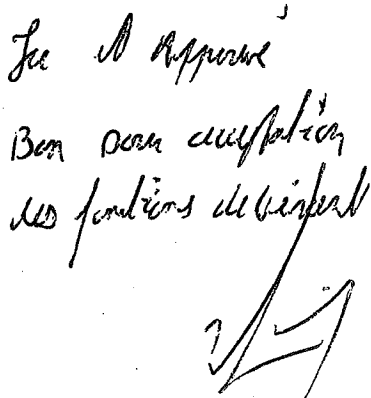 Lu et Approuvé
Bon pour acceptation
des fonctions de Gérant